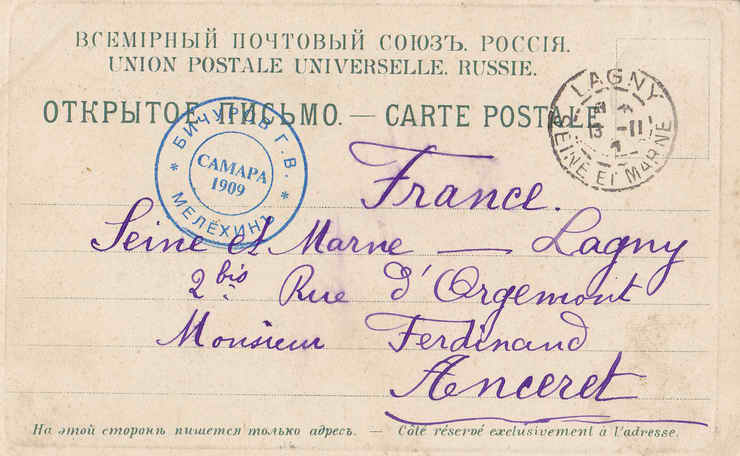 ВСЕМІРНЫЙ ПОЧТОВЫЙ СОЮЗЪ. РОССІЯ.
UNION POSTALE UNIVERSELLE. RUSSIE.
ОТКРЫТОЕ ПИСЬМО. — CARTE POSTALE
LAGNY
SEINE ET MARNE
БИЧУРОВ Г. В.
САМАРА
1909
МЕЛЁХИНЪ
France.
Seine et Marne — Lagny
2 bis Rue d'Orgemont
Monsieur Ferdinand
Anceret
На этой сторонѣ пишется только адресъ. — Côté réservé exclusivement à l'adresse.